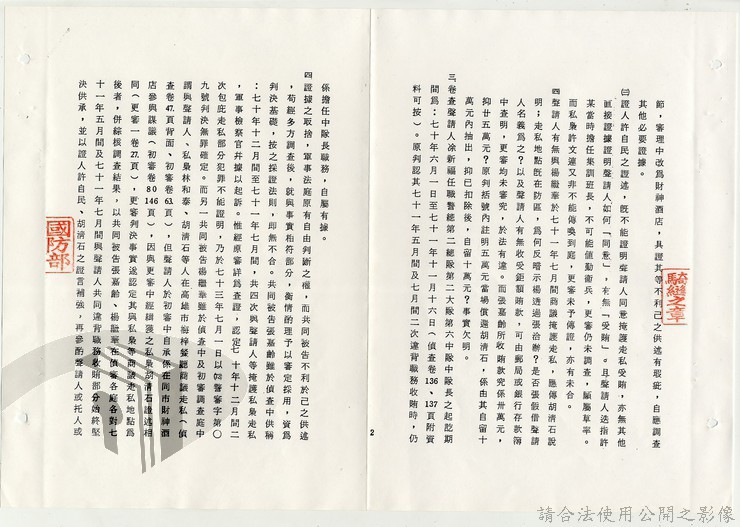 節，審理中改爲財神酒店，具證其等不利己之供述有瑕疵，自應調查
其他必要證據。
㈢證人許自民之證述，旣不能證明聲請人同意掩護走私受賄，亦無其他
直接證據證明聲請人如何「同意」，有無「受賄」。且聲請人迭指許
某當時擔任集訓班長，不可能値勤衞兵，更審仍未調查，顯屬草率。
而私梟許文運又非不能傳喚到庭，更審未予傳證，亦有未合。
㈣聲請人有無與楊繼華於七十一年七月間商議掩護走私，應傳胡清石說
明；走私地點旣在防區，爲何反暗示楊透過張洽辦？是否張假借聲請
人名義爲之？以及聲請人有無收受鉅額賄款，可由郵局或銀行存款簿
中查明，更審均未審究，於法有違。而張嘉齡所收賄款究係卅萬元，
抑廿五萬元？原判括號內註明五萬元當場償還胡清石，係由其自留十
萬元內抽出，抑已扣除後，自留十萬元？事實欠明。
三卷查聲請人凃新福任職警總第二總隊第二大隊第六中隊中隊長之起訖期
間爲：七十年六月一日至七十一年十一月十六日（偵查卷136、137頁附資
料可按）。原判認其七十一年五月間及七月間二次違背職務收賄時，仍
係擔任中隊長職務，自屬有據。
四證據之取捨，軍事法庭原有自由判斷之權，而共同被告不利於己之供述
，苟經多方調查後，就與事實相符部分，衡情酌理予以審定採用，資爲
判決基礎，按之採證法則，即無不合。共同被告張嘉齡雖於偵查中供稱
：七十年十二月間至七十一年七月間，共四次與聲請人等掩護私梟走私
，軍事檢察官幷據以起訴。惟經原審詳爲查證，認定七十年十二月間二
次包庇走私部分犯罪不能證明，乃於七十三年七月一日以㈦警審字第〇
九號判決無罪確定。而另一共同被告楊繼華雖於偵查中及初審調查庭中
謂與聲請人、私梟林和泰、胡清石等人在高雄市海梓餐廳商議走私（偵
查卷47.頁背面、初審卷63.頁），但聲請人於初審中自承係在同市財神酒
店參與謀議（初審卷80 146頁），因與更審中經緝獲之私梟胡清石證述相
同（更審一卷27.頁），更審判決事實遂認定其與私梟等商議走私地點爲
後者，併綜核調查結果，以共同被告張嘉齡、楊繼華在偵審各庭各對七
十一年五月間及七十一年七月間與聲請人共同違背職務收賄部分始終堅
決供承，並以證人許自民、胡清石之證言補強，再參酌聲請人或托人或
2
騎縫之章
國防部
請合法使用公開之影像